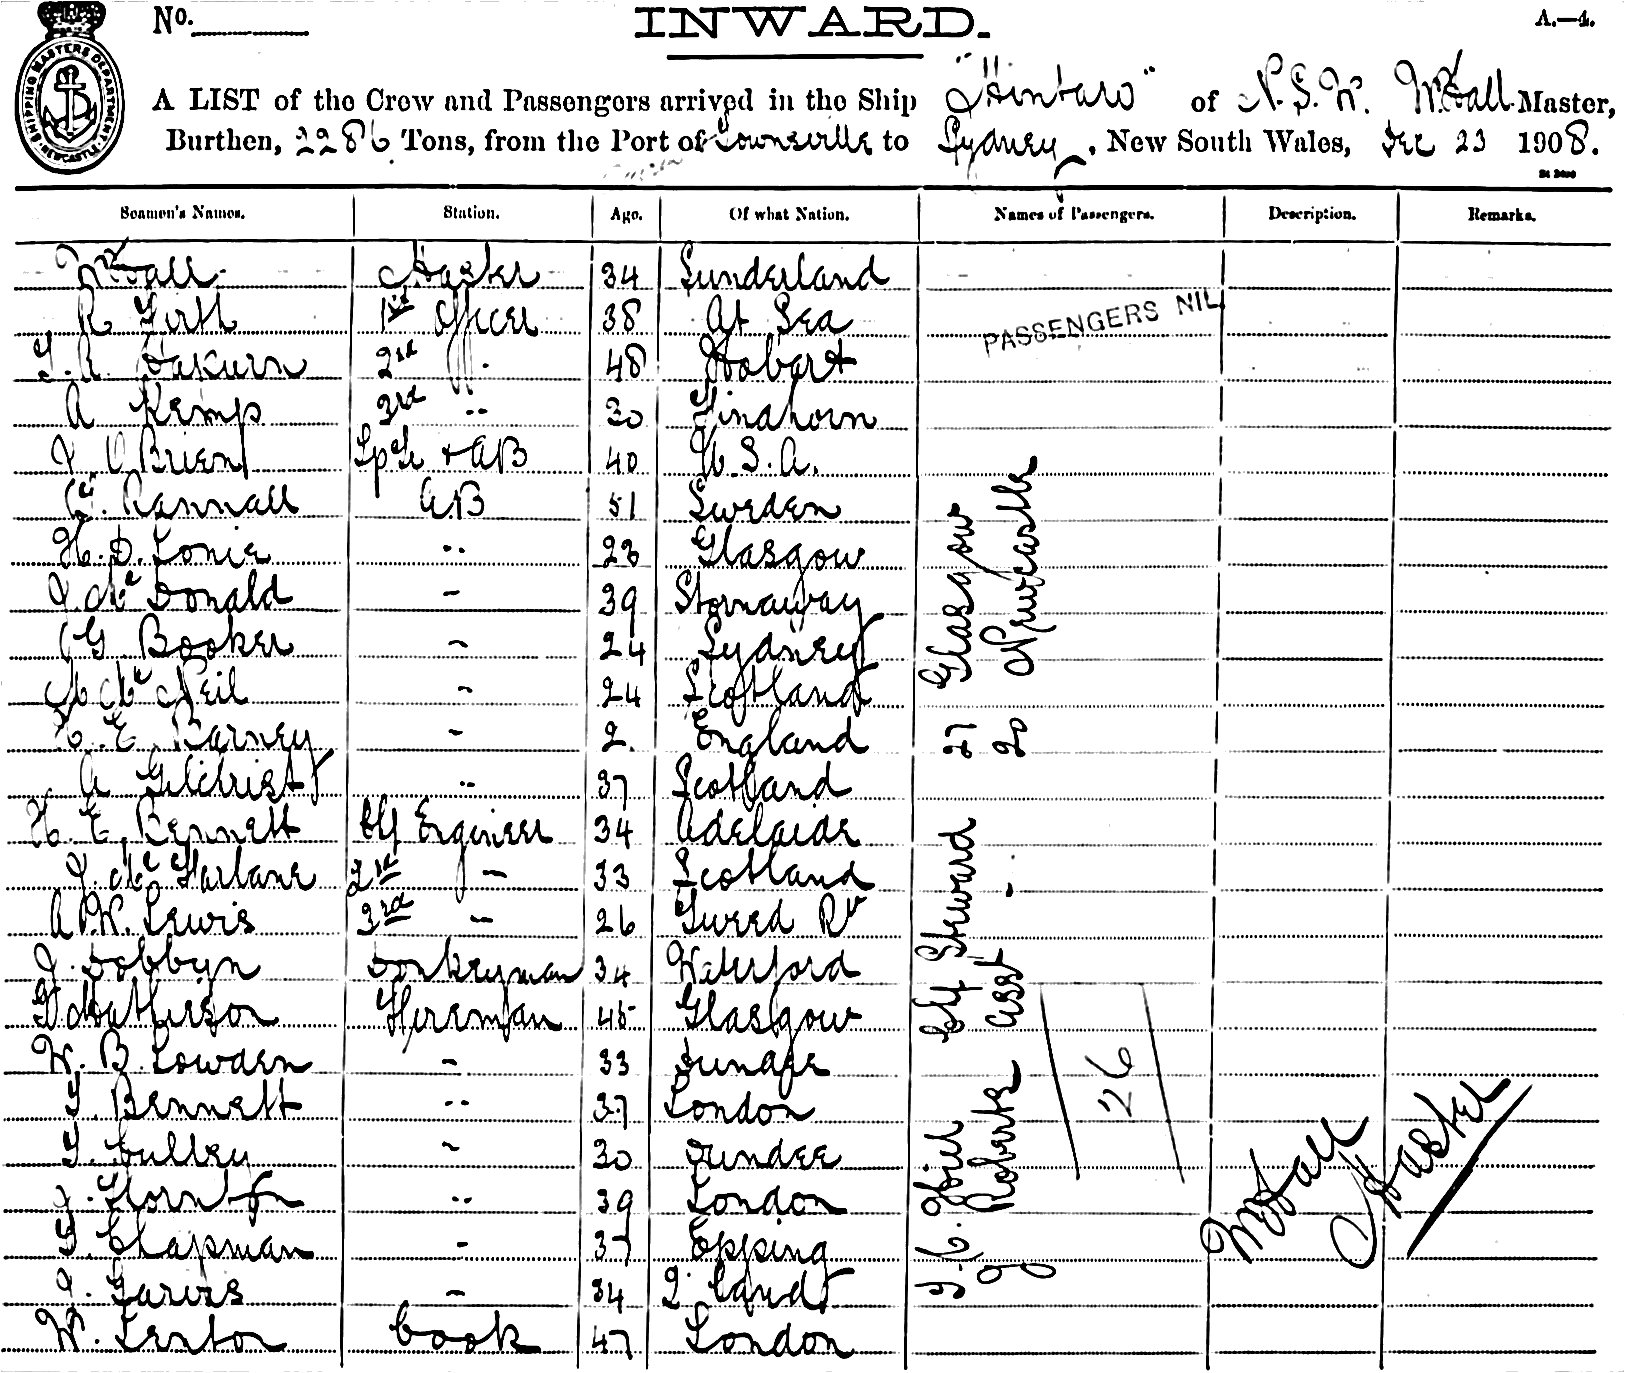 SHIPPING MASTERS DEPARTMENT NEWCASTLE
No.
INWARD.
A.—4.
A LIST of the Crew and Passengers arrived in the Ship " " of N.S.W. W Hall Master,
Burthen, 2286 Tons, from the Port of Townsville to Sydney, New South Wales, Dec 23 1908.
Seamen's Names. Station. Age. Of what Nation. Names of Passengers. Description. Remarks.
W Hall Master 34 Sunderland
R Firth 1st Officer 38 At Sea
PASSENGERS NIL
2nd 48 Hobart
A Kemp 3rd " 30 Findhorn
J. O Brien + AB 40 U.S.A.
Rannall AB 51 Sweden
H. D. Lonie " 23 Glasgow
J. Mc Donald " 39 Stornaway
G. Booker " 24 Sydney
Mc Neil " 24 Scotland
E. Barney " 2 England
A Gilchrist " 37 Scotland
H. E. Bennett Chf Engineer 34 Adelaide
J. Mc Farlane 2nd " 33 Scotland
A. W. Lewis 3rd " 26 Tweed Rr
J. Dobbyn Donkeyman 34 Waterford
Matherson Fireman 45 Glasgow
W. B. Lowden " 33 Dundee
T. Bennett " 37 London
T. Culley " 30 Dundee
J. " 39 London
T. Chapman " 37 Epping
J. Jarvis " 34 Q. land
W. Lenton Cook 47 London
Chf Steward 27 Glasgow
J. Roberts Asst " 20 Newcastle
26
W Hall
Master